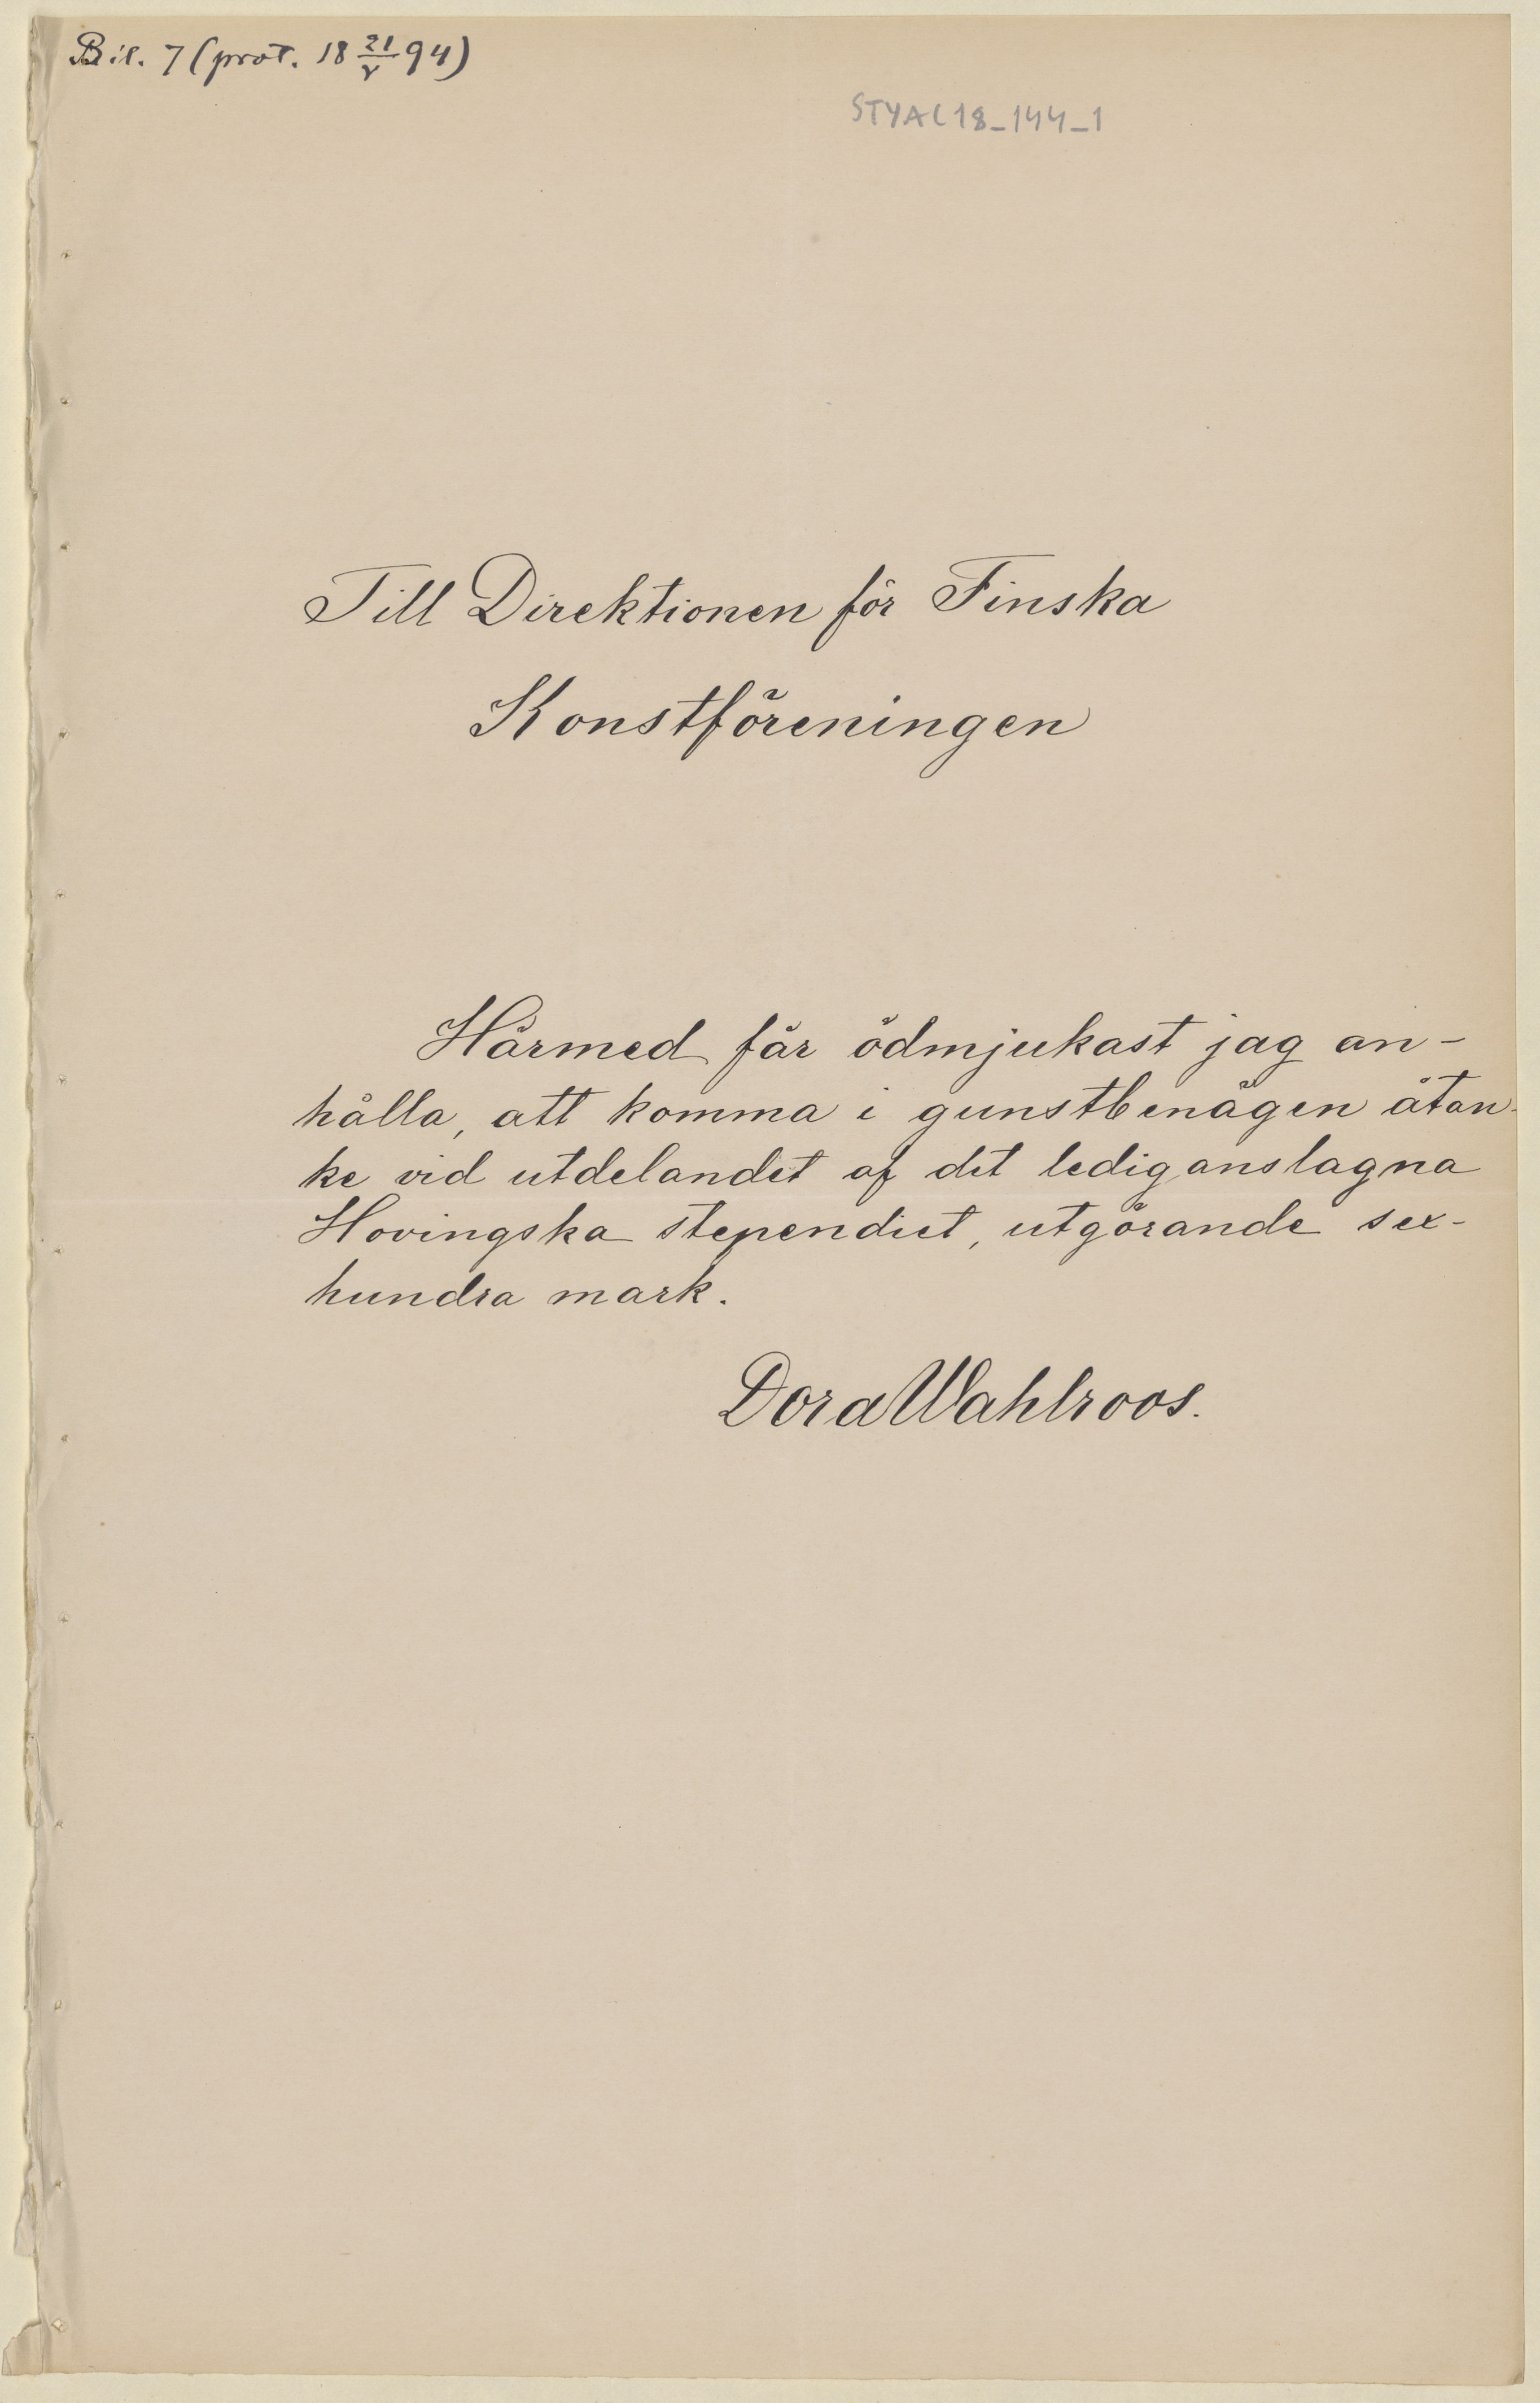 Bil. 7 (prot. 18 21/V 94)
STYAC18_144_1
Till Direktionen för Finska
Konstföreningen
Härmed får ödmjukast jag an-
hålla, att komma i gunstbenägen åtan-
ke vid utdelandet af det lediganslagna
Hovingska stependiet, utgörande sex-
hundra mark.
Dora Wahlroos.